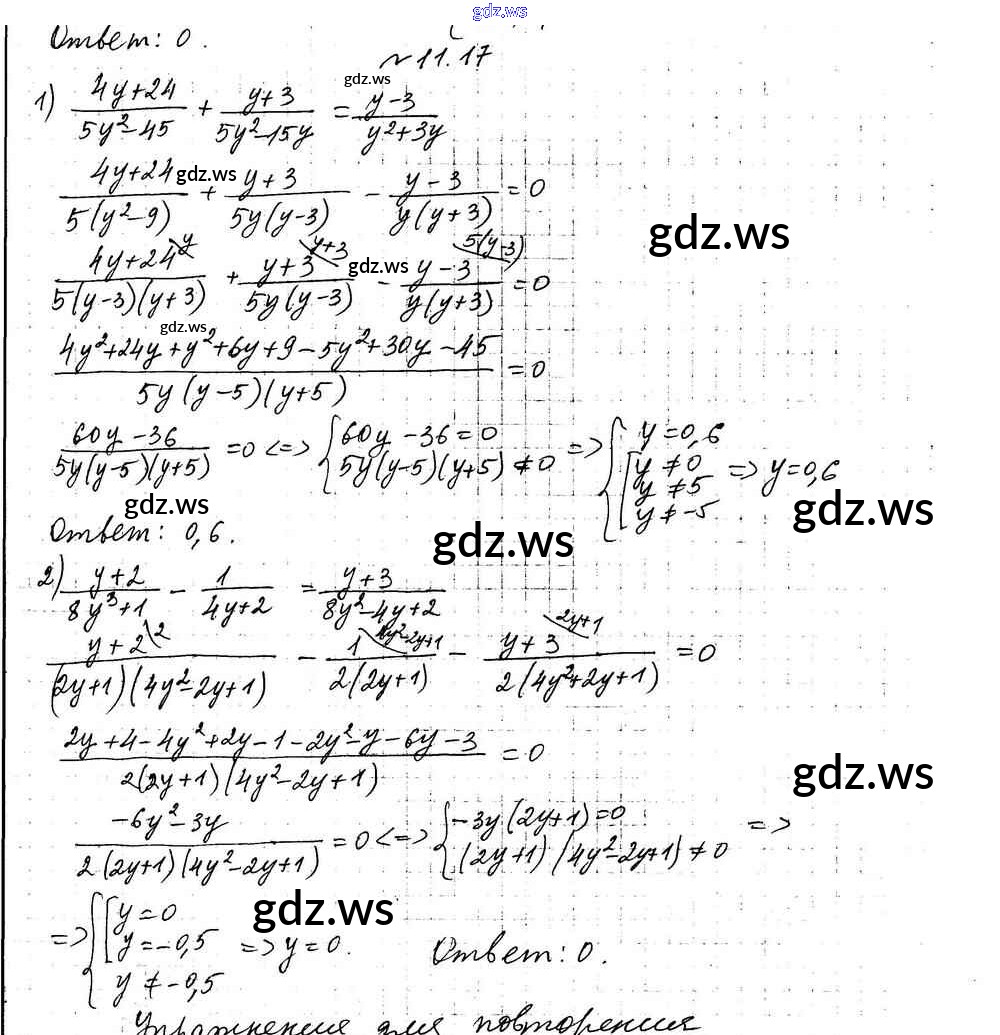 gdz.ws
Ответ: 0.
№11.17
gdz.ws
1) (4y+24)/(5y²-45) + (y+3)/(5y²-15y) = (y-3)/(y²+3y)
(4y+24)/(5(y²-9)) gdz.ws + (y+3)/(5y(y-3)) - (y-3)/(y(y+3)) = 0
gdz.ws
(4y+24)\y/(5(y-3)(y+3)) + (y+3)\y+3/(5y(y-3)) gdz.ws - (y-3)\5(y-3)/(y(y+3)) = 0
gdz.ws
(4y²+24y+y²+6y+9-5y²+30y-45)/(5y(y-5)(y+5)) = 0
(60y-36)/(5y(y-5)(y+5)) = 0 <=> { 60y-36=0; 5y(y-5)(y+5)≠0 => { y=0,6; [ y≠0; y≠5; y≠-5 => y=0,6
gdz.ws
gdz.ws
Ответ: 0,6.
gdz.ws
2) (y+2)/(8y³+1) - 1/(4y+2) = (y+3)/(8y²-4y+2)
(y+2)\2/((2y+1)(4y²-2y+1)) - 1\4y²-2y+1/(2(2y+1)) - (y+3)\2y+1/(2(4y²+2y+1)) = 0
(2y+4-4y²+2y-1-2y²-y-6y-3)/(2(2y+1)(4y²-2y+1)) = 0
gdz.ws
(-6y²-3y)/(2(2y+1)(4y²-2y+1)) = 0 <=> { -3y(2y+1)=0; (2y+1)(4y²-2y+1)≠0 =>
gdz.ws
=> { [ y=0; y=-0,5; y≠-0,5 => y=0. Ответ: 0.
Упражнения для повторения